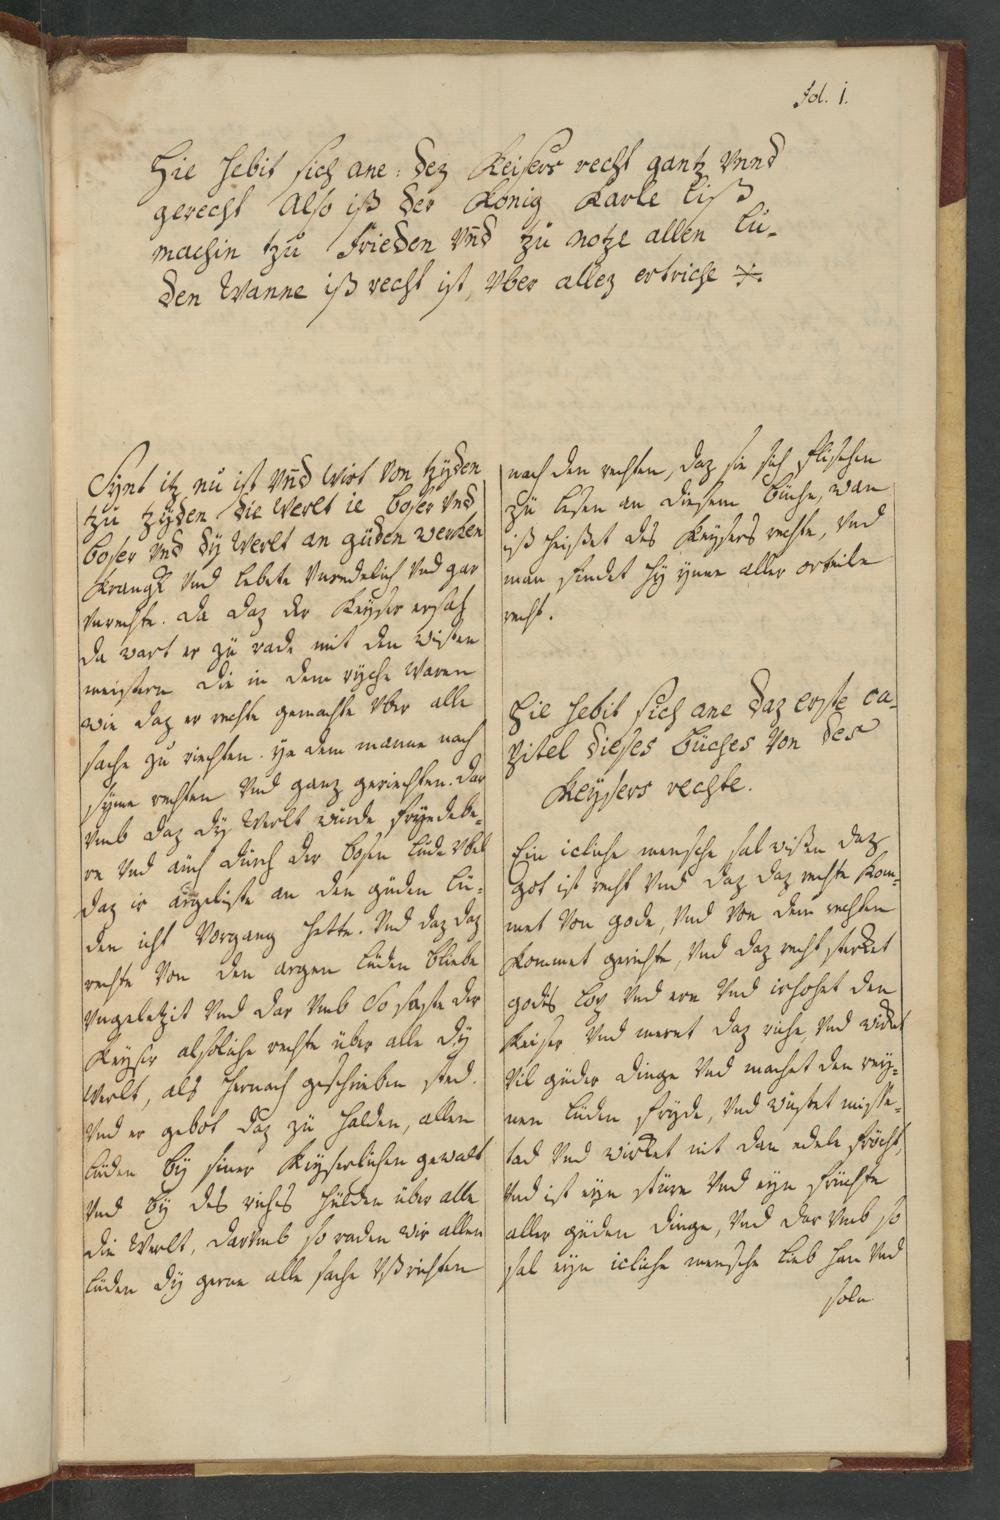 Fol. 1.
Hie hebit sich ane: dez Keisers recht gantz vnnd
gerecht Also iß der Konig Karle liß
machin tzu Frieden vnd zu notze allen lu-
den Wanne iß recht ist, vber allez ertriche
Synt itz nu ist vnd wirt von tzyden
tzu tzyden die Werlt ie boser vnd
boser vnd dy Werlt an guden werken
Krangk vnd lebete vnendelich vnd gar
vnrechte. Da daz der Keyser ersah
da wart er zu rade mit den wisten
meistern die in dem ryche waren
wie daz er rechte gemachte vber alle
sache zu riechten. Ye dem manne nach
syme rechten vnd ganz geriechten. Dar
vmb daz dy Werlt wurde frydeba-
re vnd auch durch der bosen lude vbel
daz ir argeliste an den guden lu-
den icht Vorgang hette. Vnd daz daz
rechte von den argen luden bliebe
vngeletzit vnd dar vmb So saste der
Keyser alsoliche rechte über alle dy
Werlt, als hernach geschrieben sted.
Vnd er gebot daz zu halden, allen
luden by siner Keyserlichen gewalt
vnd by des riches hulden über alle
die Werlt, darvmb so raden wir allen
luden dy gerne alle sache vßrichten
nach den rechten, daz sie sich flissehen
zu lesen an diesem buche, wan
iß heißet des Keysers rechte, vnd
man findet hy ynne aller orteile
recht.
Hie hebit sich ane daz erste ca-
pitel dieses buches von des
Keysers rechte.
Ein icliche mensche sal wißen daz
got ist recht vnd daz daz rechte kom-
met von gode, vnd von dem rechten
kommet gerichte, vnd daz recht sterket
godes loy vnd ere vnd irhohet den
Keiser vnd meret daz riche, vnd wirket
vil guder dinge vnd machet den rey-
nen luden fryde, vnd wustet misse-
tad vnd wirket nit dan edele frocht,
vnd ist eyn sture vnd eyn fruchte
aller guden dinge, vnd dar vmb so
sal eyn icliche mensche lieb han vnd
soln